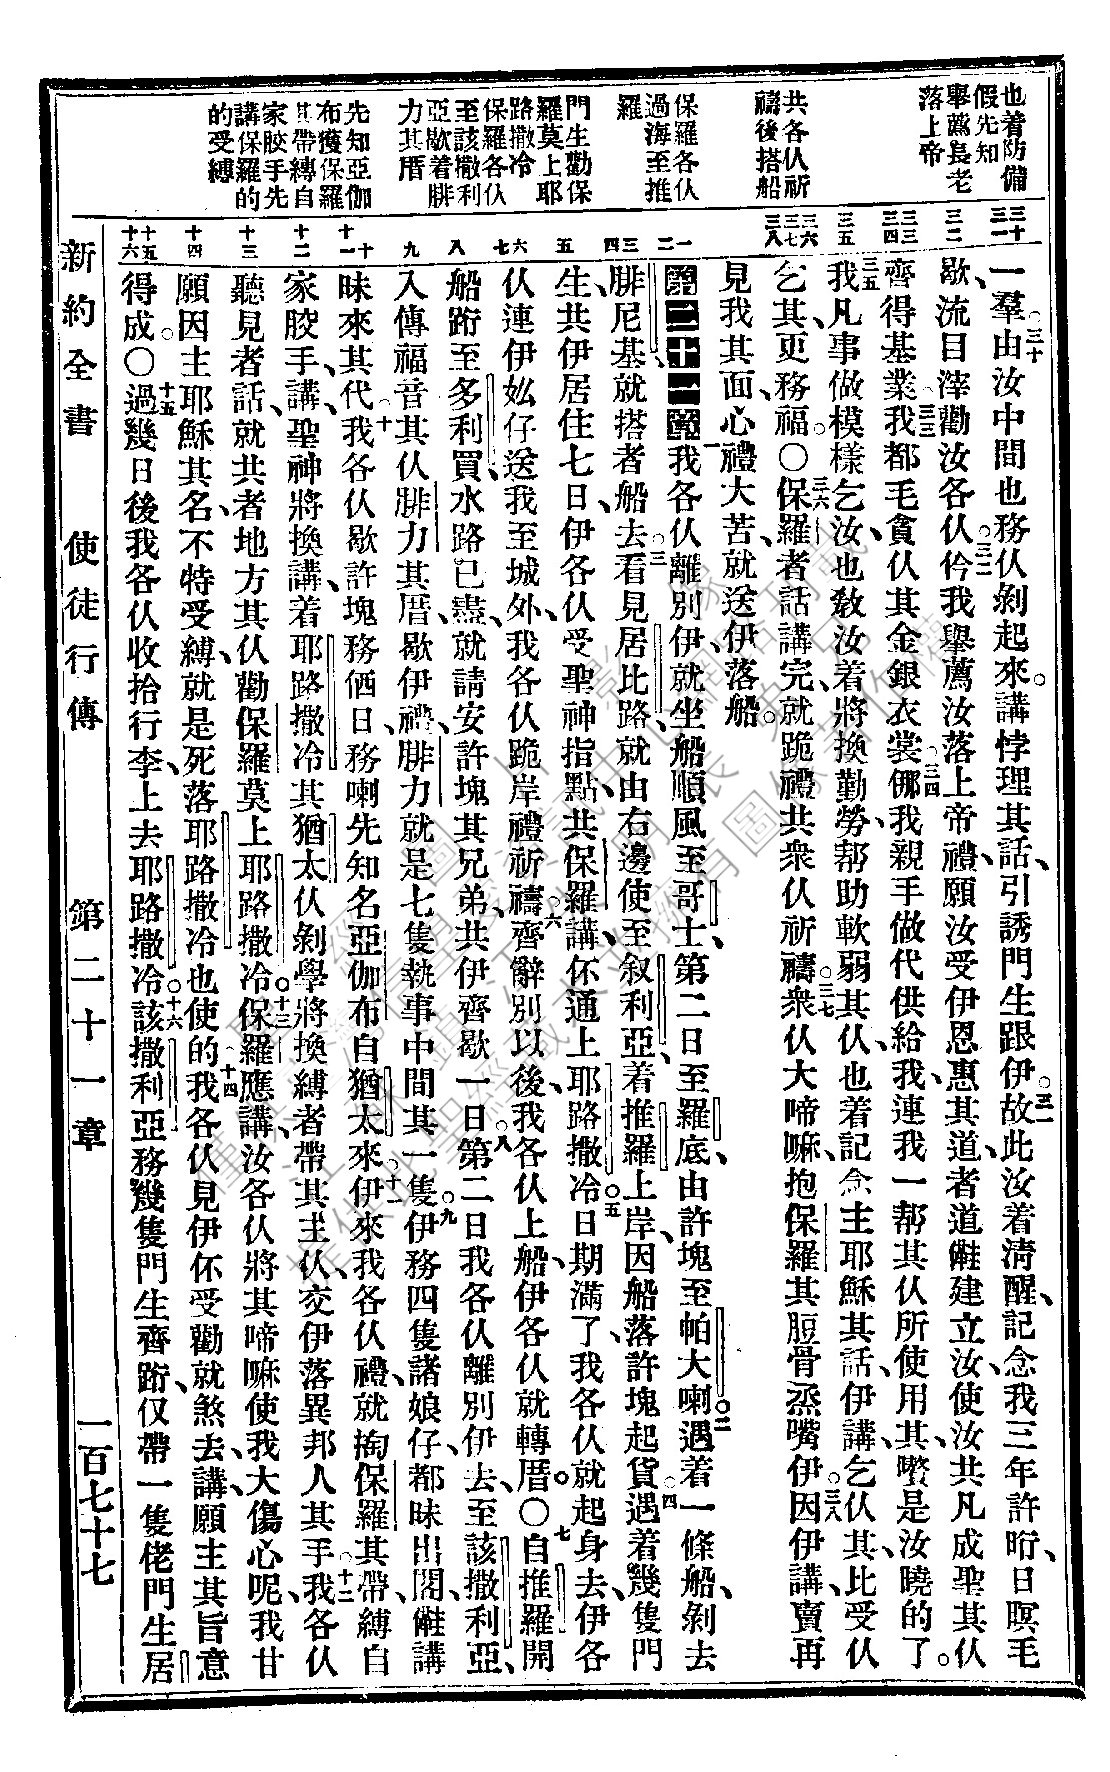 也着防備
假先知
舉薦長老
落上帝
共各仈祈
禱後搭船
保羅各仈
過海至推
羅
門生勸保
羅莫上耶
路撒冷
保羅各仈
至該撒利
亞歇着腓
力其厝
先知亞伽
布獲保羅
其帶縛自
家骹手先
講保羅的
的受縛
三十
三一
三二
三三
三四
三五
三六
三七
三八
一
二
三
四
五
六
七
八
九
十
十一
十二
十三
十四
十五
十六
一羣由汝中間也務仈剝起來講悖理其話引誘門生跟伊故此汝着清醒記念我三年許晍日暝毛
歇流目滓勸汝各仈仱我舉薦汝落上帝禮願汝受伊恩惠其道者道㑇建立汝使汝共凡成聖其仈
齊得基業我都毛貪仈其金銀衣裳𠆧我親手做代供給我連我一帮其仈所使用其㘔是汝曉的了
我凡事做模樣乞汝也教汝着將換勤勞帮助軟弱其仈也着記念主耶穌其話伊講乞仈其比受仈
乞其更務福〇保羅者話講完就跪禮共衆仈祈禱衆仈大啼嘛抱保羅其脰骨烝嘴伊因伊講賣再
見我其面心禮大苦就送伊落船
第二十一章我各仈離別伊就坐船順風至哥士第二日至羅底由許塊至帕大喇遇着一條船剝去
腓尼基就搭者船去看見居比路就由右邊使至叙利亞着推羅上岸因船落許塊起貨遇着幾隻門
生共伊居住七日伊各仈受聖神指點共保羅講伓通上耶路撒冷日期滿了我各仈就起身去伊各
仈連伊奻仔送我至城外我各仈跪岸禮祈禱齊辭別以後我各仈上船伊各仈就轉厝〇自推羅開
船跨至多利買水路已盡就請安許塊其兄弟共伊齊歇一日第二日我各仈離別伊去至該撒利亞
入傳福音其仈腓力其厝歇伊禮腓力就是七隻執事中間其一隻伊務四隻諸娘仔都昧出閣㑇講
昧來其代我各仈歇許塊務価日務喇先知名亞伽布自猶太來伊來我各仈禮就掏保羅其帶縛自
家骹手講聖神將換講着耶路撒冷其猶太仈剝學將換縛者帶其主仈交伊落異邦人其手我各仈
聽見者話就共者地方其仈勸保羅莫上耶路撒冷保羅應講汝各仈將其啼嘛使我大傷心呢我甘
願因主耶穌其名不特受縛就是死落耶路撒冷也使的我各仈見伊伓受勸就煞去講願主其旨意
得成〇過幾日後我各仈收拾行李上去耶路撒冷該撒利亞務幾隻門生齊跨仅帶一隻佬門生居
新約全書　使徒行傳　第二十一章　一百七十七